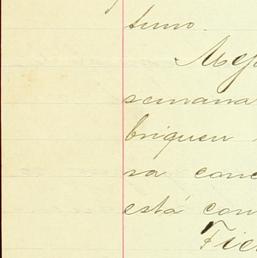 tuno.
semana
briqueu
ra conc
está con
Fie